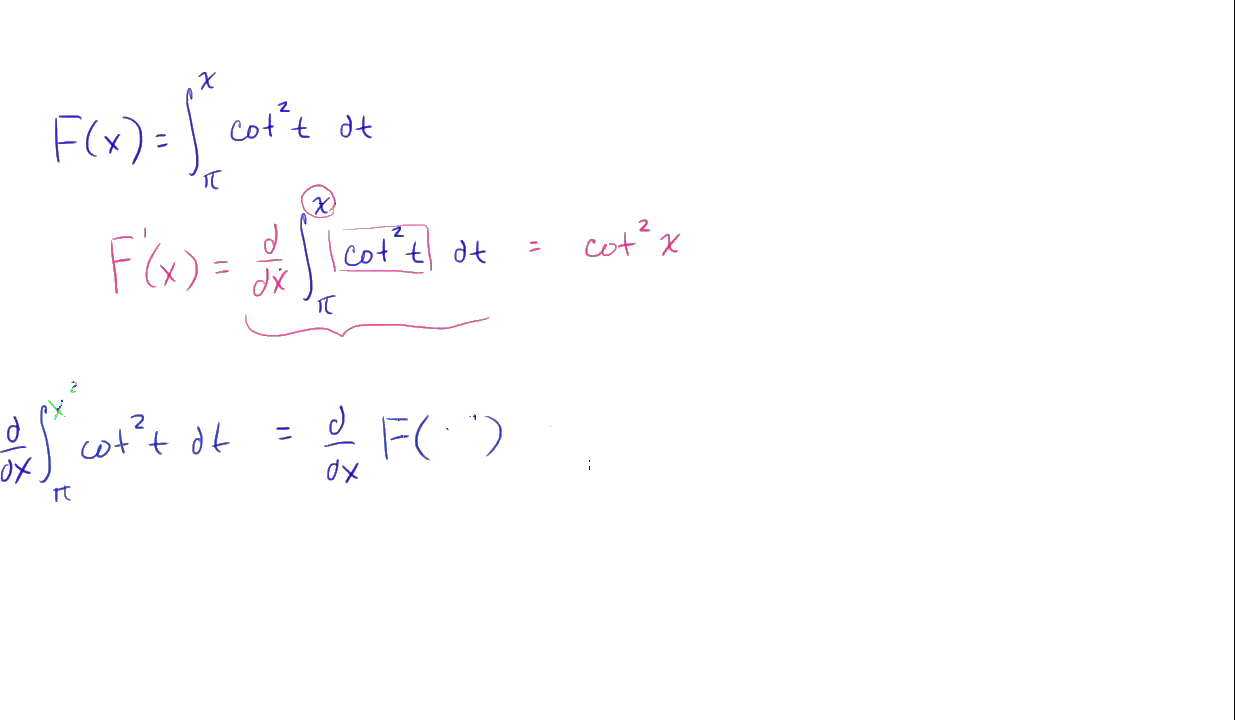 F(x) = ∫_π^x cot² t dt
F'(x) = d/dx ∫_π^x cot² t dt = cot² x
d/dx ∫_π^x² cot² t dt = d/dx F( )